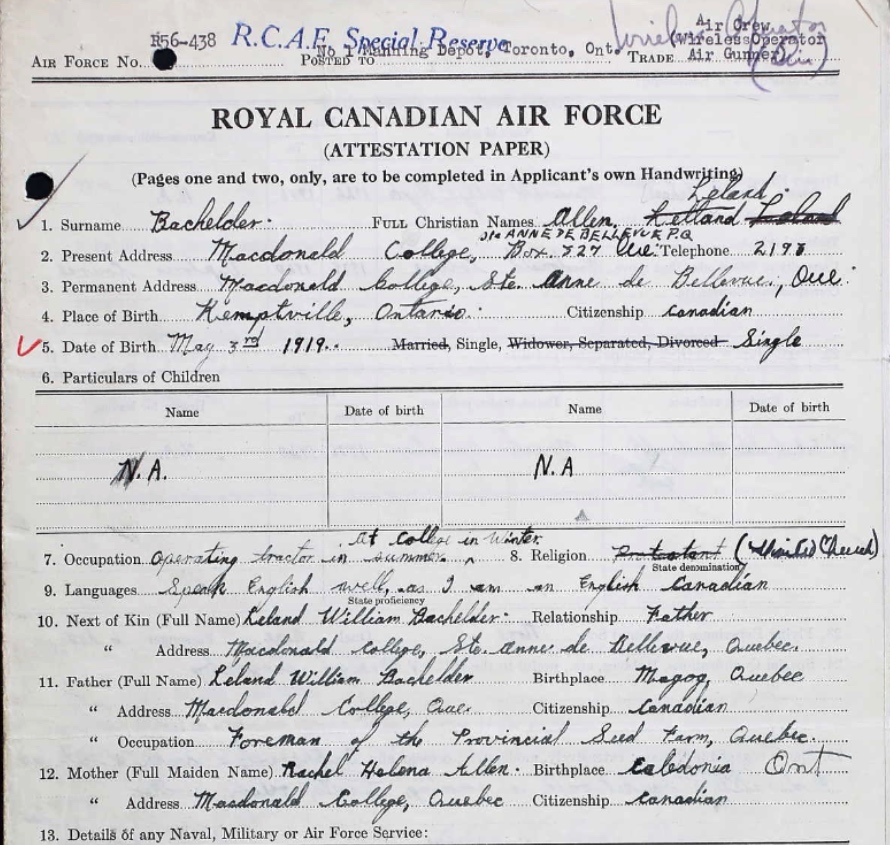 R56-438 R.C.A.F. Special Reserve Air Crew
AIR FORCE No. POSTED TO No 1 Manning Depot, Toronto, Ont. TRADE (Wireless Operator
Air Gunner)
ROYAL CANADIAN AIR FORCE
(ATTESTATION PAPER)
(Pages one and two, only, are to be completed in Applicant's own Handwriting)
Leland.
1. Surname Bachelder. FULL Christian Names Allen, Lelland Leland
Ste ANNE DE BELLEVUE P.Q
2. Present Address Macdonald College, Box. 327 Que. Telephone 2198
3. Permanent Address Macdonald College, Ste. Anne de Bellevue, Que.
4. Place of Birth Kemptville, Ontario. Citizenship Canadian
5. Date of Birth May 3rd 1919. Married, Single, Widower, Separated, Divorced Single
6. Particulars of Children
Name Date of birth Name Date of birth
N.A. N.A
At College in Winter
7. Occupation Operating tractor in summer 8. Religion Protestant (United Church)
State denomination
9. Languages Speak English well, as I am an English Canadian
State proficiency
10. Next of Kin (Full Name) Leland William Bachelder. Relationship Father
" Address Macdonald College, Ste. Anne de Bellevue, Quebec.
11. Father (Full Name) Leland William Bachelder Birthplace Magog, Quebec
" Address Macdonald College, Que. Citizenship Canadian
" Occupation Foreman of the Provincial Seed Farm, Quebec.
12. Mother (Full Maiden Name) Rachel Helena Allen. Birthplace Caledonia Ont
" Address Macdonald College, Quebec Citizenship Canadian
13. Details of any Naval, Military or Air Force Service: